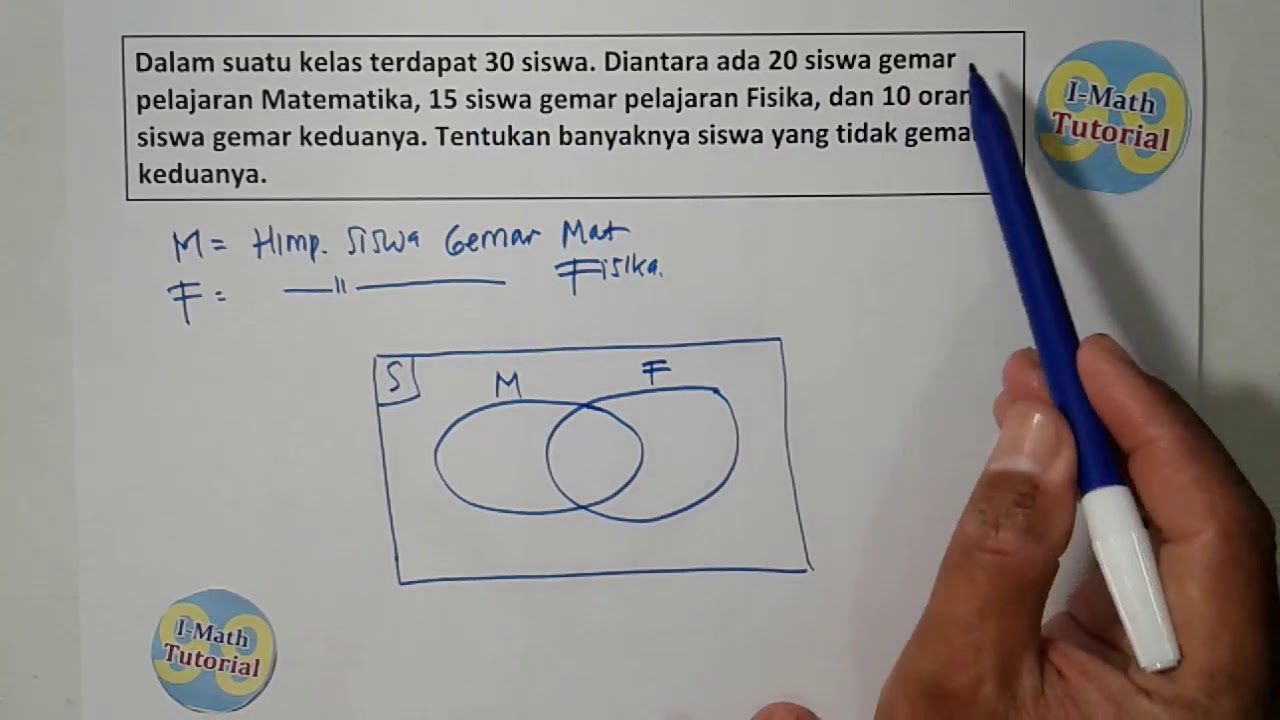 Dalam suatu kelas terdapat 30 siswa. Diantara ada 20 siswa gemar
pelajaran Matematika, 15 siswa gemar pelajaran Fisika, dan 10 oran
siswa gemar keduanya. Tentukan banyaknya siswa yang tidak gema
keduanya.
I-Math
Tutorial
99
M = Himp. Siswa Gemar Mat
F = —— " —— Fisika.
S
M
F
I-Math
Tutorial
99